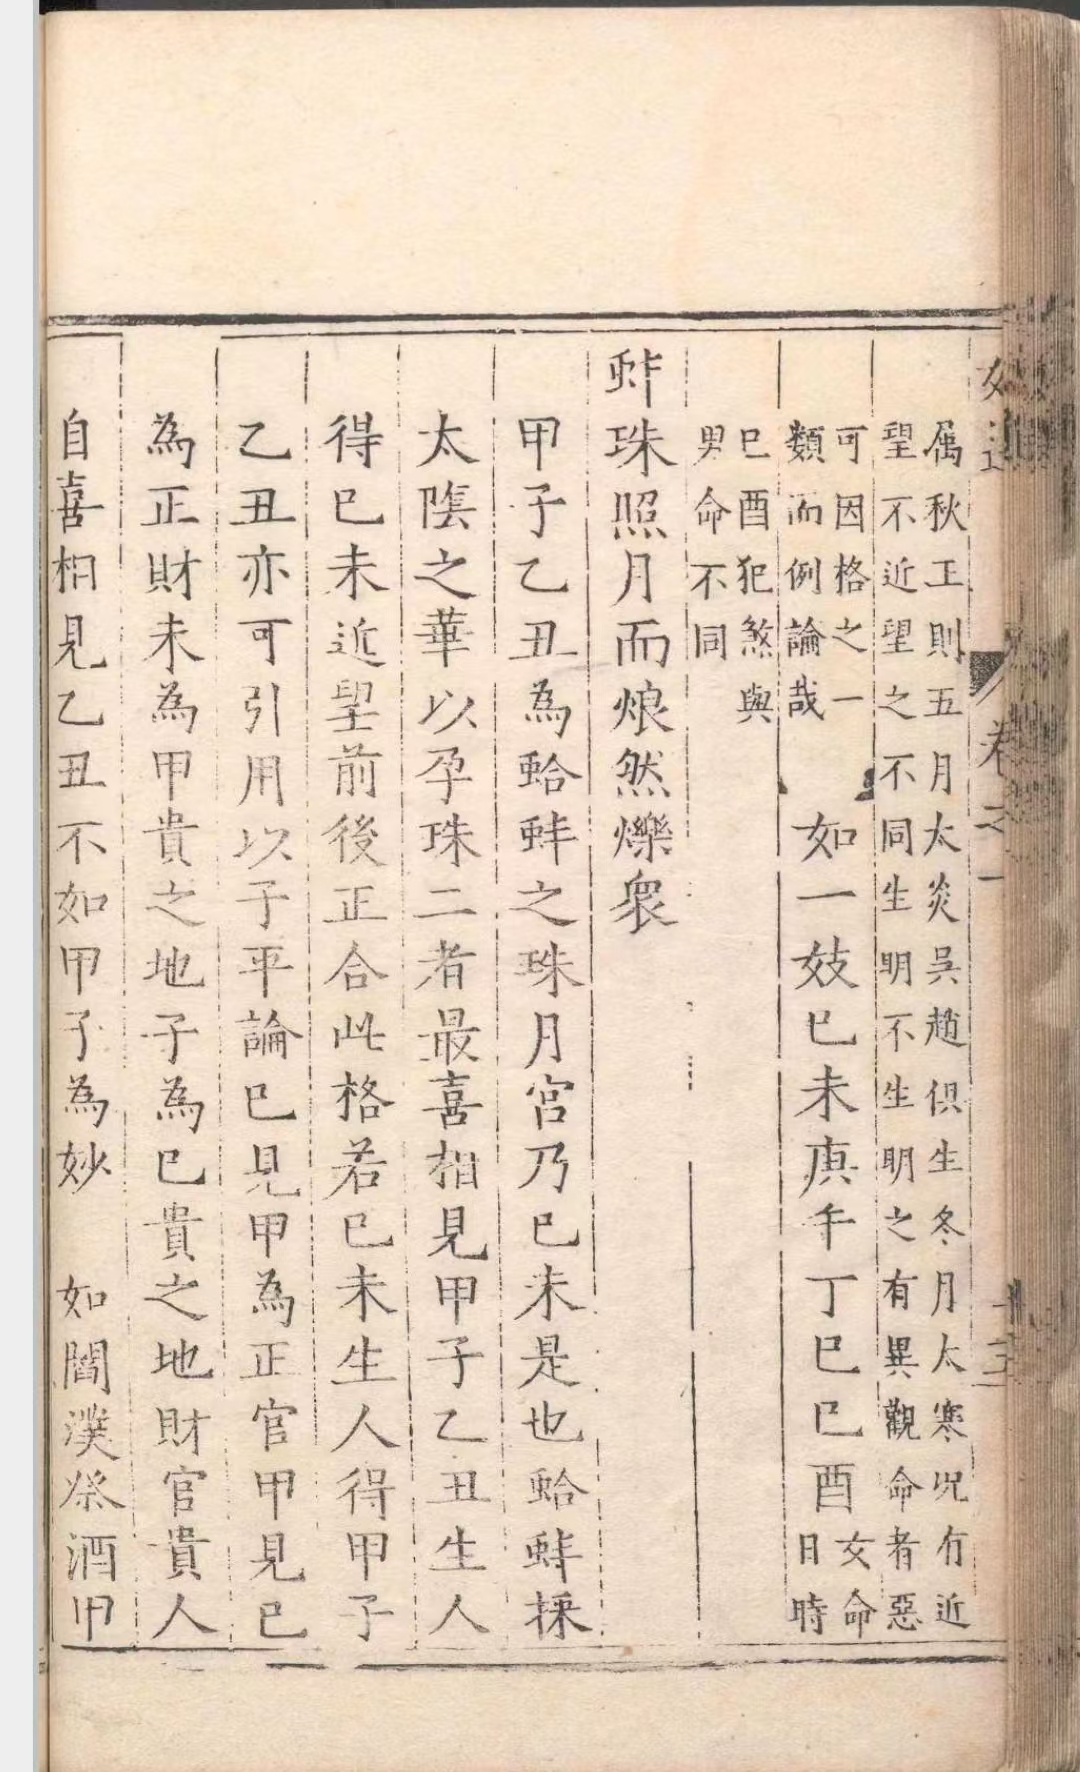 卷之一
属秋工則五月太炎吳趙俱生冬月太寒况有近
望不近望之不同生明不生明之有異觀命者惡
可因格之一
類而例論哉
如一妓巳未庚午丁巳巳酉
女命
日時
巳酉犯煞與
男命不同
蚌珠照月而烺然爍衆
甲子乙丑為蛤蚌之珠月宮乃巳未是也蛤蚌採
太陰之華以孕珠二者最喜相見甲子乙丑生人
得巳未近望前後正合此格若巳未生人得甲子
乙丑亦可引用以子平論巳見甲為正官甲見巳
為正財未為甲貴之地子為巳貴之地財官貴人
自喜相見乙丑不如甲子為妙　如閻濮祭酒甲